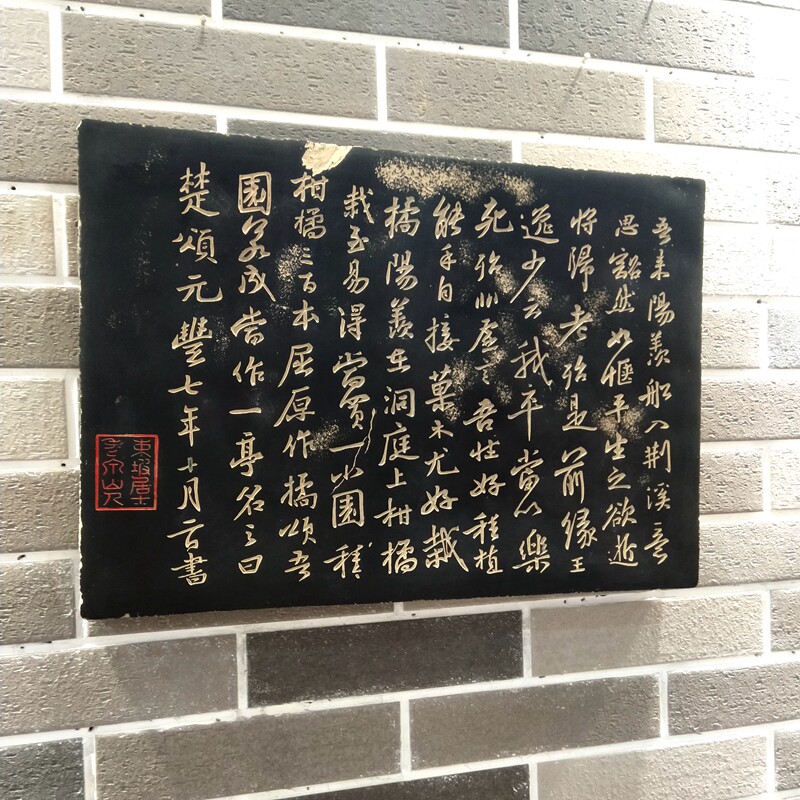 吾來陽羨船入荆溪意
思豁然如愜平生之欲逝
将歸老殆是前緣王
逸少云我卒當以樂
死殆非虛言吾性好種植
能手自接菓木尤好栽
橘陽羨在洞庭上柑橘
栽至易得當買一小園種
柑橘三百本屈原作橘頌吾
園若成當作一亭名之曰
楚頌元豐七年十月二日書
東坡居士
老泉山人